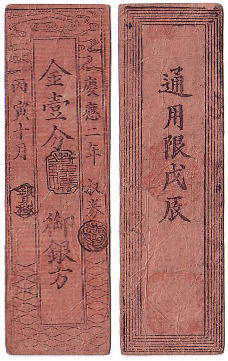 慶應二年
金壹分
御銀方
丙寅十月
通用限戊辰